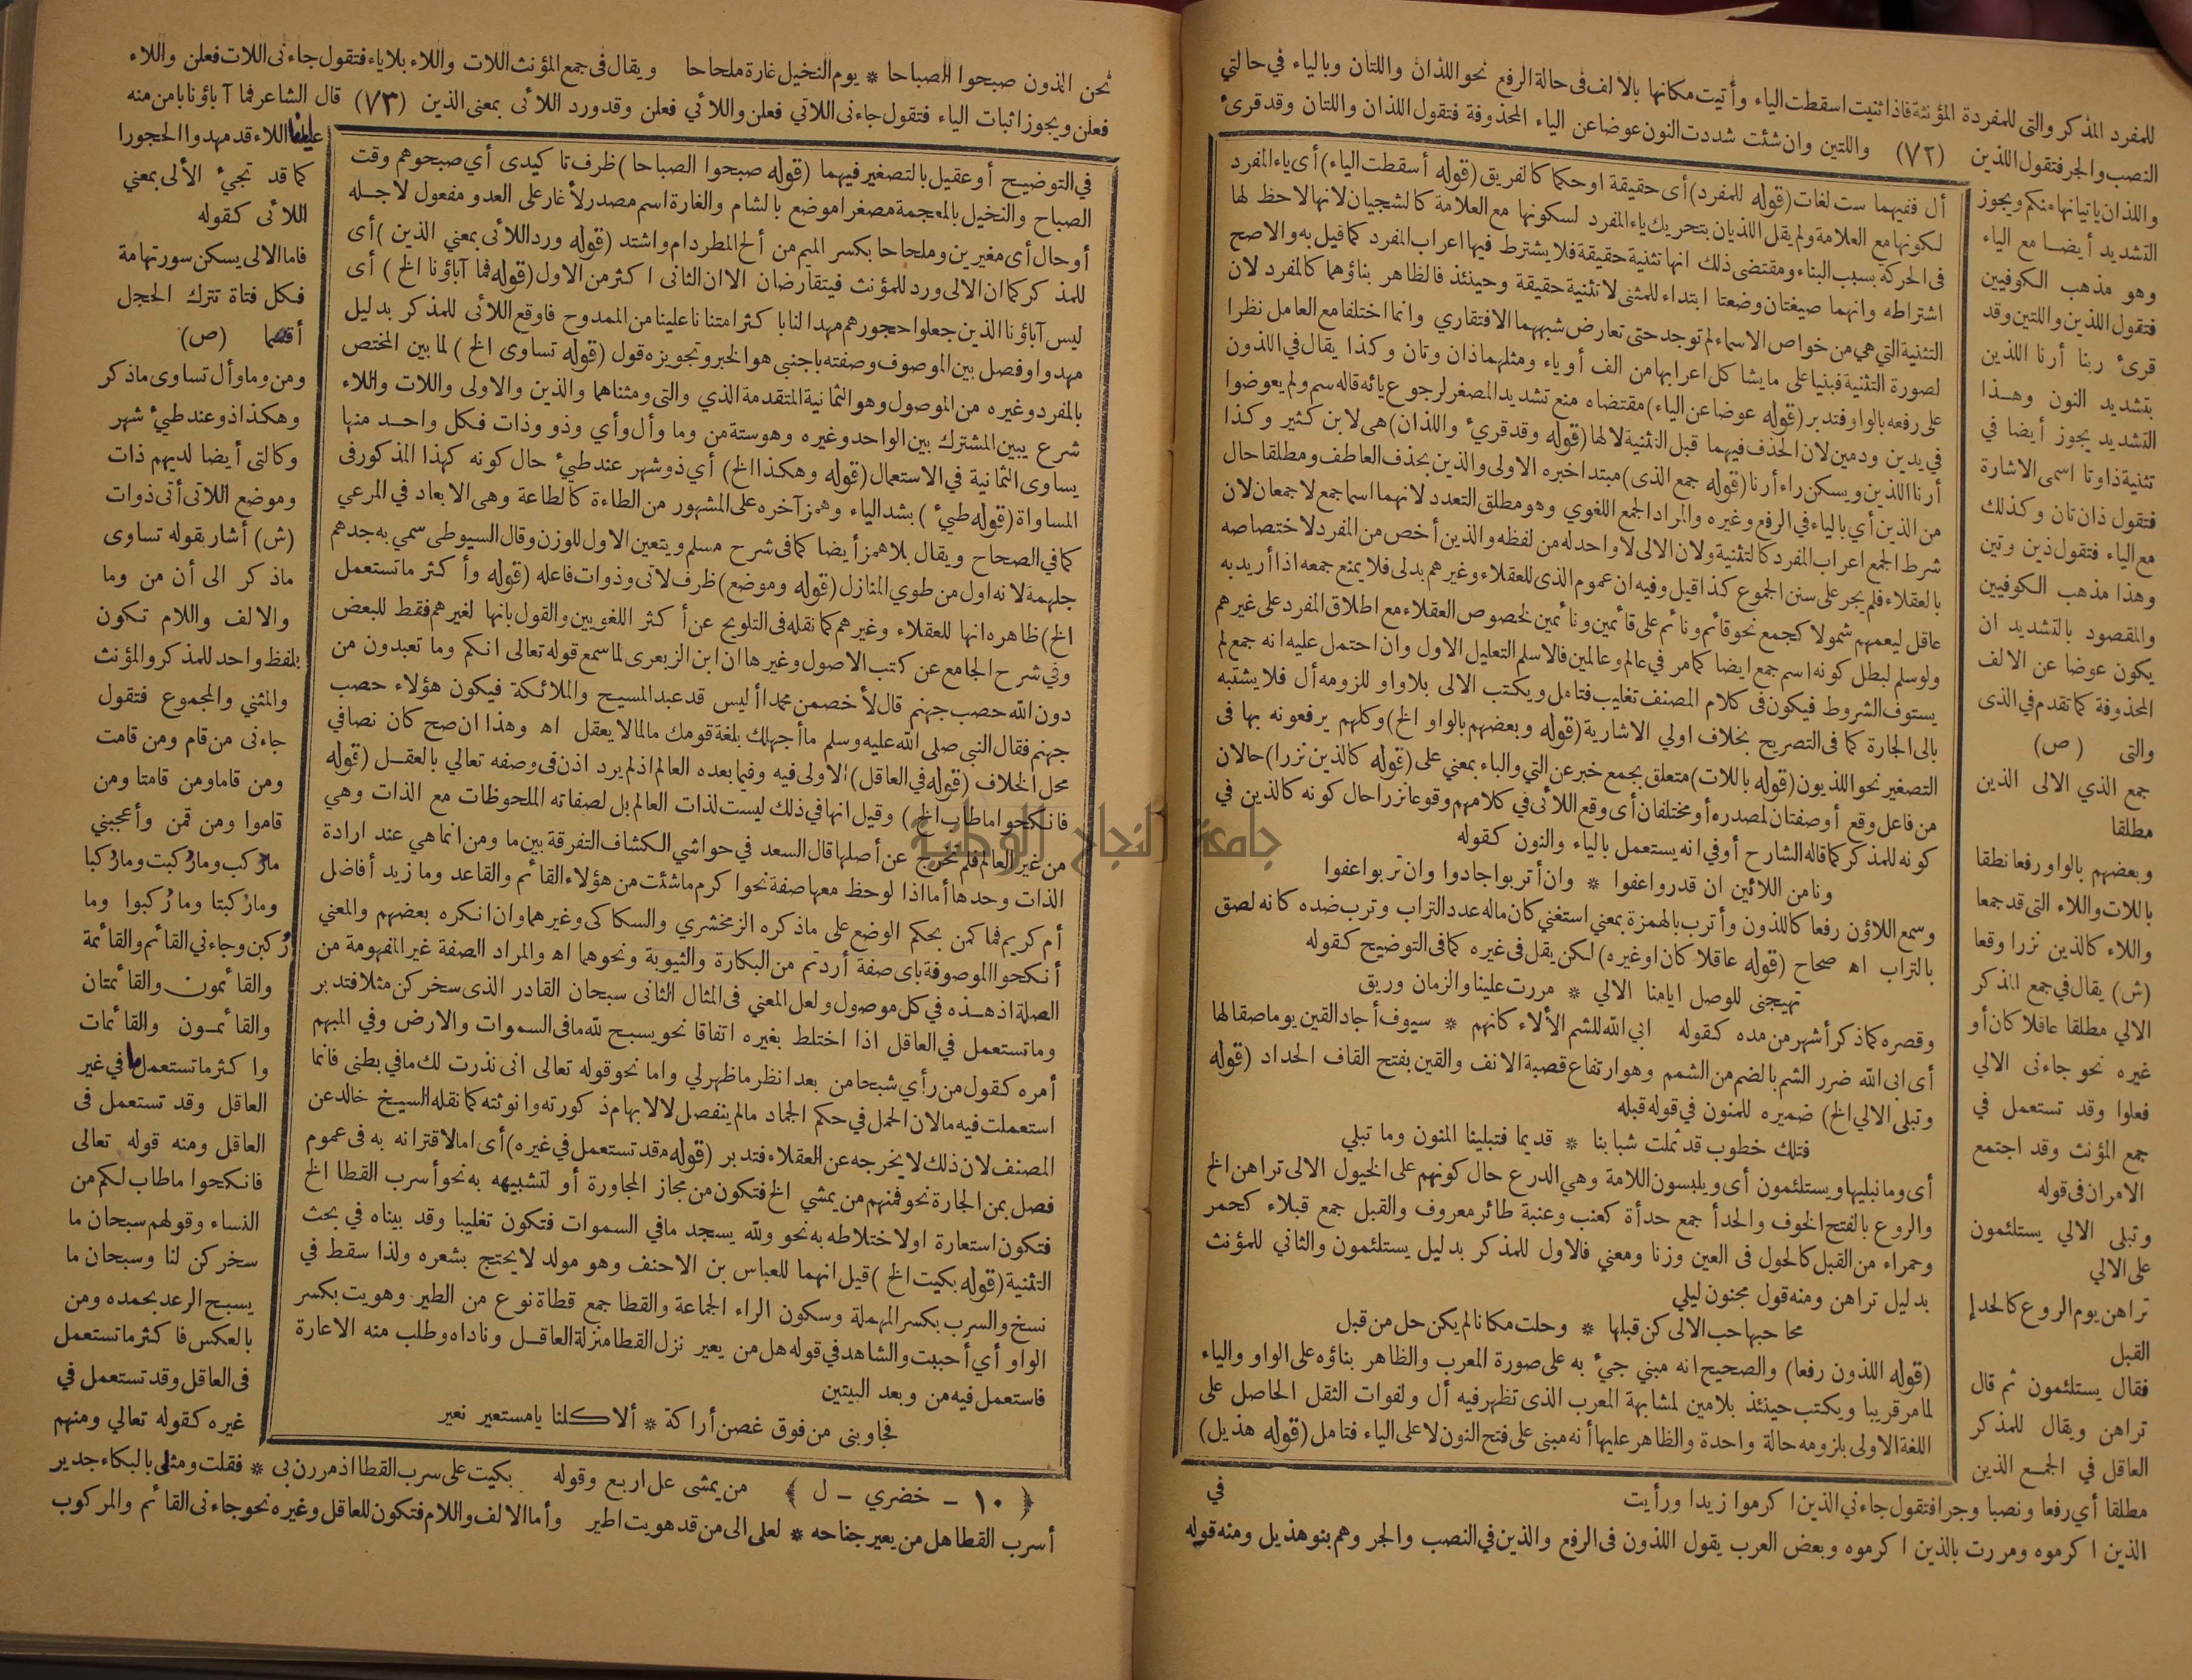 للمفرد المذكر والتى للمفردة المؤنثة فاذا ثنيت اسقطت الياء وأتيت مكانها بالالف فى حالة الرفع نحو اللذان واللتان وبالياء في حالتي
النصب والجر فتقول اللذين (٧٢) واللتين وان شئت شددت النون عوضا عن الياء المحذوفة فتقول اللذان واللتان وقد قرئ
واللذان يأتيانها منكم ويجوز
التشديد أيضا مع الياء
وهو مذهب الكوفيين
فتقول اللذين واللتين وقد
قرئ ربنا أرنا اللذين
بتشديد النون وهذا
التشديد يجوز أيضا في
تثنية ذا وتا اسمى الاشارة
فتقول ذان تان وكذلك
مع الياء فتقول ذين وتين
وهذا مذهب الكوفيين
والمقصود بالتشديد ان
يكون عوضا عن الالف
المحذوفة كما تقدم في الذى
والتى (ص)
جمع الذي الالى الذين
مطلقا
وبعضهم بالواو رفعا نطقا
باللات واللاء التى قد جمعا
واللاء كالذين نزرا وقعا
(ش) يقال في جمع المذكر
الالي مطلقا عاقلا كان أو
غيره نحو جاءنى الالي
فعلوا وقد تستعمل في
جمع المؤنث وقد اجتمع
الامران فى قوله
وتبلى الالي يستلئمون
على الالي
تراهن يوم الروع كالحدإ
القبل
فقال يستلئمون ثم قال
تراهن ويقال للمذكر
العاقل في الجمع الذين
أل ففيهما ست لغات (قوله للمفرد) أى حقيقة اوحكما كالفريق (قوله أسقطت الياء) أى ياء المفرد
لكونها مع العلامة ولم يقل اللذيان بتحريك ياء المفرد لسكونها مع العلامة كالشجيان لانها لاحظ لها
فى الحركة بسبب البناء ومقتضى ذلك انها تثنية حقيقة فلا يشترط فيها اعراب المفرد كما قيل به والاصح
اشتراطه وانهما صيغتان وضعتا ابتداء للمثنى لا تثنية حقيقة وحينئذ فالظاهر بناؤهما كالمفرد لان
التثنية التي هي من خواص الاسماء لم توجد حتى تعارض شبههما الافتقاري وانما اختلفا مع العامل نظرا
لصورة التثنية فبنيا على ما يشاكل اعرابها من الف أو ياء ومثلهما ذان وتان وكذا يقال في اللذون
على رفعه بالواو فتدبر (قوله عوضا عن الياء) مقتضاه منع تشديد المصغر لرجوع يائه قاله سم ولم يعوضوا
في يدين ودمين لان الحذف فيهما قبل التثنية لا لها (قوله وقد قريء واللذان) هى لابن كثير وكذا
أرنا اللذين ويسكن راء أرنا (قوله جمع الذى) مبتدا خبره الاولى والذين بحذف العاطف ومطلقا حال
من الذين أي بالياء في الرفع وغيره والمراد الجمع اللغوي وهو مطلق التعدد لانهما اسما جمع لا جمعان لان
شرط الجمع اعراب المفرد كالتثنية ولان الالى لا واحد له من لفظه والذين أخص من المفرد لاختصاصه
بالعقلاء فلم يجر على سنن الجموع كذا قيل وفيه ان عموم الذى للعقلاء وغيرهم بدلى فلا يمنع جمعه اذا أريد به
عاقل ليعمهم شمولا كجمع نحو قائم ونائم على قائمين ونائمين لخصوص العقلاء مع اطلاق المفرد على غيرهم
ولو سلم لبطل كونه اسم جمع ايضا كما مر في عالم وعالمين فالاسلم التعليل الاول وان احتمل عليه انه جمع لم
يستوف الشروط فيكون فى كلام المصنف تغليب فتامل ويكتب الالى بلا واو للزومه أل فلا يشتبه
بالى الجارة كما فى التصريح بخلاف اولي الاشارية (قوله وبعضهم بالواو الخ) وكلهم يرفعونه بها فى
التصغير نحو اللذيون (قوله باللات) متعلق بجمع خبر عن التي والباء بمعني على (قوله كالذين نزرا) حالان
من فاعل وقع أو صفتان لمصدره أو مختلفان أى وقع اللائى في كلامهم وقوعا نزرا حال كونه كالذين في
كونه للمذكر كما قاله الشارح أو في انه يستعمل بالياء والنون كقوله
ونا من اللائين ان قدروا عفوا * وان أتربوا جادوا وان تربوا عفوا
وسمع اللاؤن رفعا كاللذون وأترب بالهمزة بمعني استغني كان ماله عدد التراب وترب ضده كانه لصق
بالتراب اه صحاح (قوله عاقلا كان اوغيره) لكن يقل فى غيره كما فى التوضيح كقوله
تهيجنى للوصل ايامنا الالي * مررت علينا والزمان وريق
وقصره كما ذكر أشهر من مده كقوله ابي الله للشم الألاء كانهم * سيوف أجاد القين يوما صقالها
أى ابى الله ضرر الشم بالضم من الشمم وهو ارتفاع قصبة الانف والقين بفتح القاف الحداد (قوله
وتبلى الالي الخ) ضميره للمنون في قوله قبله
فتلك خطوب قد تملت شبابنا * قديما فتبلينا المنون وما تبلي
أى وما نبليها ويستلئمون أى ويلبسون اللامة وهي الدرع حال كونهم على الخيول الالى تراهن الخ
والروع بالفتح الخوف والحدأ جمع حدأة كعنب وعنبة طائر معروف والقبل جمع قبلاء كحمر
وحمراء من القبل كالحول فى العين وزنا ومعني فالاول للمذكر بدليل يستلئمون والثاني للمؤنث
بدليل تراهن ومنه قول مجنون ليلي
محا حبها حب الالى كن قبلها * وحلت مكانا لم يكن حل من قبل
(قوله اللذون رفعا) والصحيح انه مبني جيء به على صورة المعرب والظاهر بناؤه على الواو والياء
لما مر قريبا ويكتب حينئذ بلامين لمشابهة المعرب الذى تظهر فيه أل ولفوات الثقل الحاصل على
اللغة الاولى بلزومه حالة واحدة والظاهر عليها أنه مبنى على فتح النون لا على الياء فتامل (قوله هذيل)
في
مطلقا أي رفعا ونصبا وجرا فتقول جاءني الذين اكرموا زيدا ورأيت
الذين اكرموه ومررت بالذين اكرموه وبعض العرب يقول اللذون فى الرفع والذين في النصب والجر وهم بنو هذيل ومنه قوله
نحن الذون صبحوا الصباحا * يوم النخيل غارة ملحاحا ويقال فى جمع المؤنث اللات واللاء بلا ياء فتقول جاءنى اللات فعلن واللاء
فعلن ويجوز اثبات الياء فتقول جاءنى اللاتي فعلن واللائي فعلن وقد ورد اللائى بمعنى الذين (٧٣) قال الشاعر فما آباؤنا بامن منه
علينا اللاء قد مهدوا الحجورا
كما قد تجيء الألى بمعني
اللائى كقوله
فاما الالى يسكن سورتهامة
فكل فتاة تترك الحجل
أقصما (ص)
ومن وما وأل تساوى ما ذكر
وهكذا ذو عند طيء شهر
وكالتى أيضا لديهم ذات
وموضع اللاتى أتى ذوات
(ش) أشار بقوله تساوى
ما ذكر الى أن من وما
والالف واللام تكون
بلفظ واحد للمذكر والمؤنث
والمثني والمجموع فتقول
جاءنى من قام ومن قامت
ومن قاما ومن قامتا ومن
قاموا ومن قمن وأعجبني
ما ركب وما ركبت وما ركبا
وما ركبتا وما ركبوا وما
ركبن وجاءني القائم والقائمة
والقائمون والقائمتان
والقائمون والقائمات
واكثر ما تستعمل ما في غير
العاقل وقد تستعمل فى
العاقل ومنه قوله تعالى
فانكحوا ما طاب لكم من
النساء وقولهم سبحان ما
سخركن لنا وسبحان ما
يسبح الرعد بحمده ومن
بالعكس فاكثر ما تستعمل
فى العاقل وقد تستعمل في
غيره كقوله تعالي ومنهم
في التوضيح أو عقيل بالتصغير فيهما (قوله صبحوا الصباحا) ظرف تاكيدى أي صبحوهم وقت
الصباح والنخيل بالمعجمة مصغرا موضع بالشام والغارة اسم مصدر لأغار على العدو مفعول لاجله
أو حال أى مغيرين وملحاحا بكسر الميم من ألح المطر دام واشتد (قوله ورد اللائى بمعني الذين) أى
للمذكر كما ان الالى ورد للمؤنث فيتقارضان الا ان الثانى اكثر من الاول (قوله فما آباؤنا الخ) أى
ليس آباؤنا الذين جعلوا حجورهم مهدا لنا باكثر امتنانا علينا من الممدوح فاوقع اللائى للمذكر بدليل
مهدوا وفصل بين الموصوف وصفته باجنبي هو الخبر وتجويزه قول (قوله تساوى الخ) لما بين المختص
بالمفرد وغيره من الموصول وهو الثمانية المتقدمة الذي والتى ومثناهما والذين والاولى واللات واللاء
شرع يبين المشترك بين الواحد وغيره وهو ستة من وما وأل وأي وذو وذات فكل واحد منها
يساوى الثمانية في الاستعمال (قوله وهكذا الخ) أي ذو شهر عند طيء حال كونه كهذا المذكور فى
المساواة (قوله طيء) بشد الياء وهمز آخره على المشهور من الطاءة كالطاعة وهى الابعاد في المرعي
كما في الصحاح ويقال بلا همز أيضا كما فى شرح مسلم ويتعين الاول للوزن وقال السيوطى سمي به جدهم
جلهمة لانه اول من طوي المنازل (قوله وموضع) ظرف لاتى وذوات فاعله (قوله وأكثر ما تستعمل
الخ) ظاهره انها للعقلاء وغيرهم كما نقله فى التلويح عن أكثر اللغويين والقول بانها لغيرهم فقط للبعض
وفي شرح الجامع عن كتب الاصول وغيرها ان ابن الزبعرى لما سمع قوله تعالى انكم وما تعبدون من
دون الله حصب جهنم قال لأخصمن محمدا أليس قد عبد المسيح والملائكة فيكون هؤلاء حصب
جهنم فقال النبي صلى الله عليه وسلم ما أجهلك بلغة قومك ما لما لا يعقل اه وهذا ان صح كان نصا في
محل الخلاف (قوله في العاقل) الاولى فيه وفيما بعده العالم اذ لم يرد اذن فى وصفه تعالي بالعقل (قوله
فانكحوا ما طاب الخ) وقيل انها في ذلك ليست لذات العالم بل لصفاته الملحوظات مع الذات وهي
من غير العالم فلم تخرج عن أصلها قال السعد في حواشي الكشاف التفرقة بين ما ومن انما هي عند ارادة
الذات وحدها أما اذا لوحظ معها صفة نحو اكرم ما شئت من هؤلاء القائم والقاعد وما زيد أفاضل
أم كريم فما كمن بحكم الوضع على ما ذكره الزمخشري والسكاكى وغيرهما وان انكره بعضهم والمعني
أنكحوا الموصوفة باى صفة أردتم من البكارة والثيوبة ونحوهما اه والمراد الصفة غير المفهومة من
الصلة اذ هذه في كل موصول ولعل المعني فى المثال الثانى سبحان القادر الذى سخركن مثلا فتدبر
وما تستعمل في العاقل اذا اختلط بغيره اتفاقا نحو يسبح لله ما فى السموات والارض وفي المبهم
أمره كقول من رأي شبحا من بعد انظر ما ظهر لي واما نحو قوله تعالى انى نذرت لك ما في بطنى فانما
استعملت فيه ما لان الحمل في حكم الجماد ما لم ينفصل لا لابهام ذكورته وانوثته كما نقله الشيخ خالد عن
المصنف لان ذلك لا يخرجه عن العقلاء فتدبر (قوله وقد تستعمل في غيره) أى اما لاقترانه به فى عموم
فصل بمن الجارة نحو فمنهم من يمشي الخ فتكون من مجاز المجاورة أو لتشبيهه به نحو أسرب القطا الخ
فتكون استعارة او لاختلاطه به نحو ولله يسجد ما في السموات فتكون تغليبا وقد بيناه في بحث
التثنية (قوله بكيت الخ) قيل انهما للعباس بن الاحنف وهو مولد لا يحتج بشعره ولذا سقط في
نسخ والسرب بكسر المهملة وسكون الراء الجماعة والقطا جمع قطاة نوع من الطير وهويت بكسر
الواو أي أحببت والشاهد في قوله هل من يعير نزل القطا منزلة العاقل وناداه وطلب منه الاعارة
فاستعمل فيه من وبعد البيتين
فجاوبنى من فوق غصن أراكة * ألا كلنا يا مستعير نعير
من يمشى على اربع وقوله بكيت على سرب القطا اذ مررن بي * فقلت ومثلى بالبكاء جدير
(١٠ - خضري - ل)
أسرب القطا هل من يعير جناحه * لعلى الى من قد هويت اطير وأما الالف واللام فتكون للعاقل وغيره نحو جاءنى القائم والمركوب
جامعة النجاح الوطنية